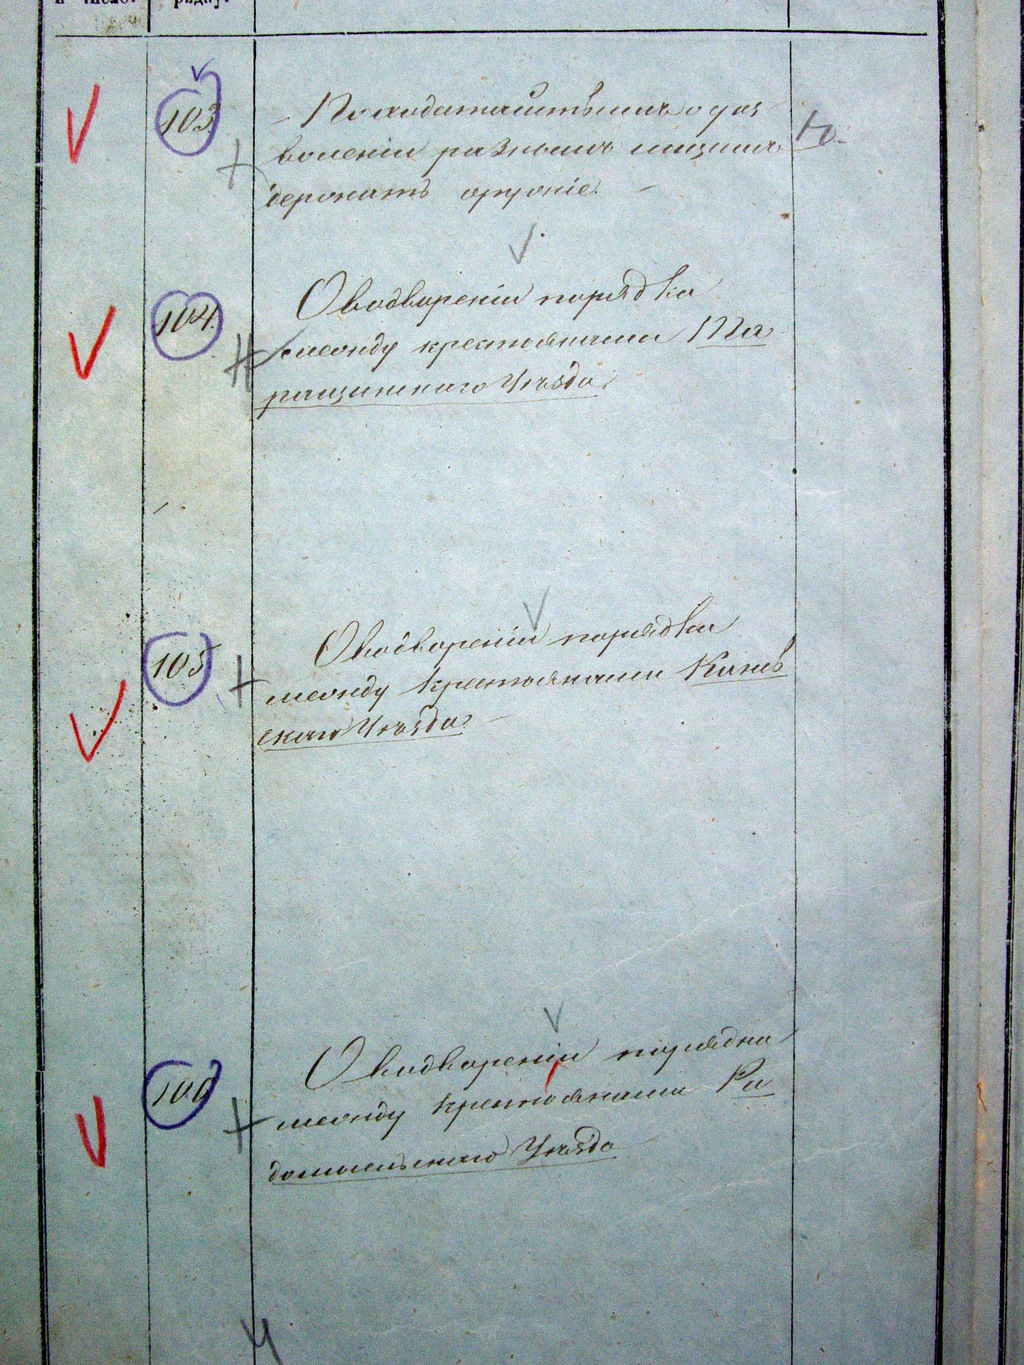 и число.
рядку.
103.
По ходатайствамъ о доз
воленіи разнымъ лицамъ
держать оружіе. —
104.
О водвореніи порядка
между крестьянами Та
ращанскаго Уѣзда.
105
О водвореніи порядка
между крестьянамиКанев
скаго Уѣзда. —
106
О водвореніи порядка
между крестьянами Ра
домысльскаго Уѣзда